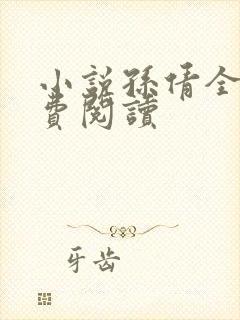 小說孫倩全
費閱讀
牙齿